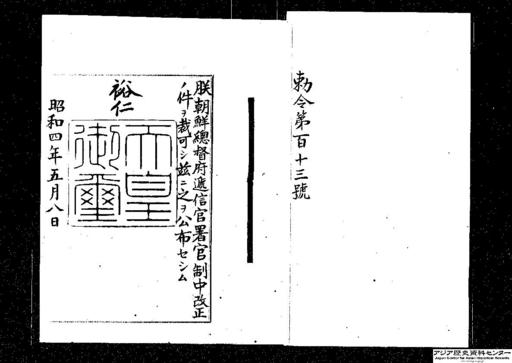 勅令第百十三號
朕朝鮮總督府遞信官署官制中改正
ノ件ヲ裁可シ茲ニ之ヲ公布セシム
裕仁
天皇御璽
昭和四年五月八日
アジア歴史資料センター
Japan Center for Asian Historical Records